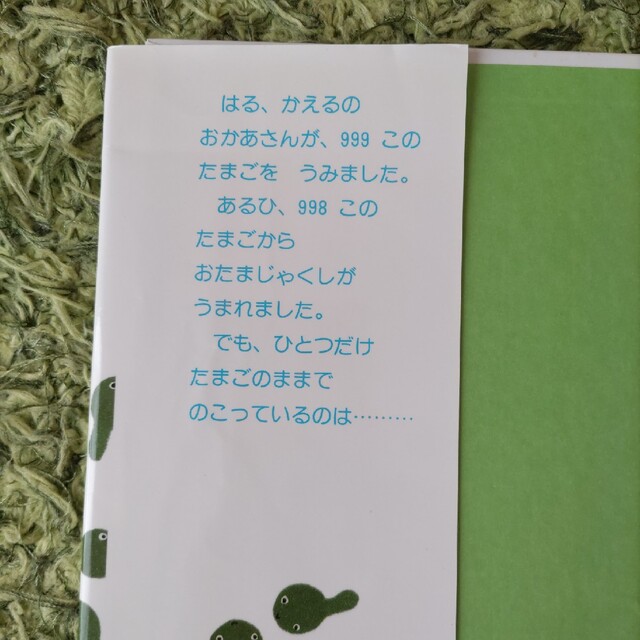 はる、かえるの
おかあさんが、999 この
たまごを　うみました。
あるひ、998 この
たまごから
おたまじゃくしが
うまれました。
でも、ひとつだけ
たまごのままで
のこっているのは………